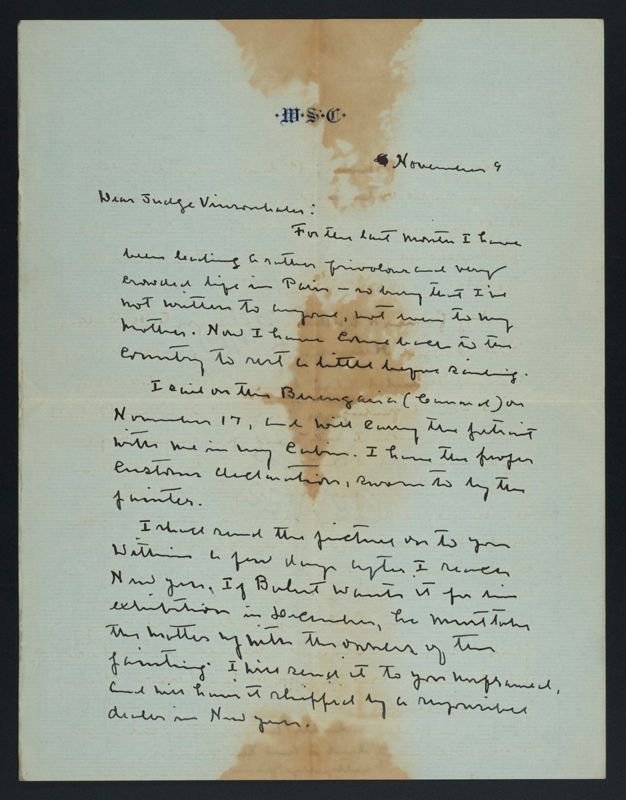 ·M·S·C·
November 9
Dear Judge Vinsonhaler:
For the last month I have
been leading a rather frivolous and very
crowded life in Paris – so busy that I've
not written to anyone, not even to my
mother. Now I have come back to the
country to rest a little before sailing.
I sail on the Berengaria (Cunard) on
November 17, and will carry the portrait
with me in my cabin. I have the proper
customs declaration, sworn to by the
painter.
I shall send the picture on to you
within a few days after I reach
New York. If Bakst wants it for his
exhibition in December, he must take
the matter up with the owners of the
painting. I will send it to you unframed,
and will have it shipped by a responsible
dealer in New York.